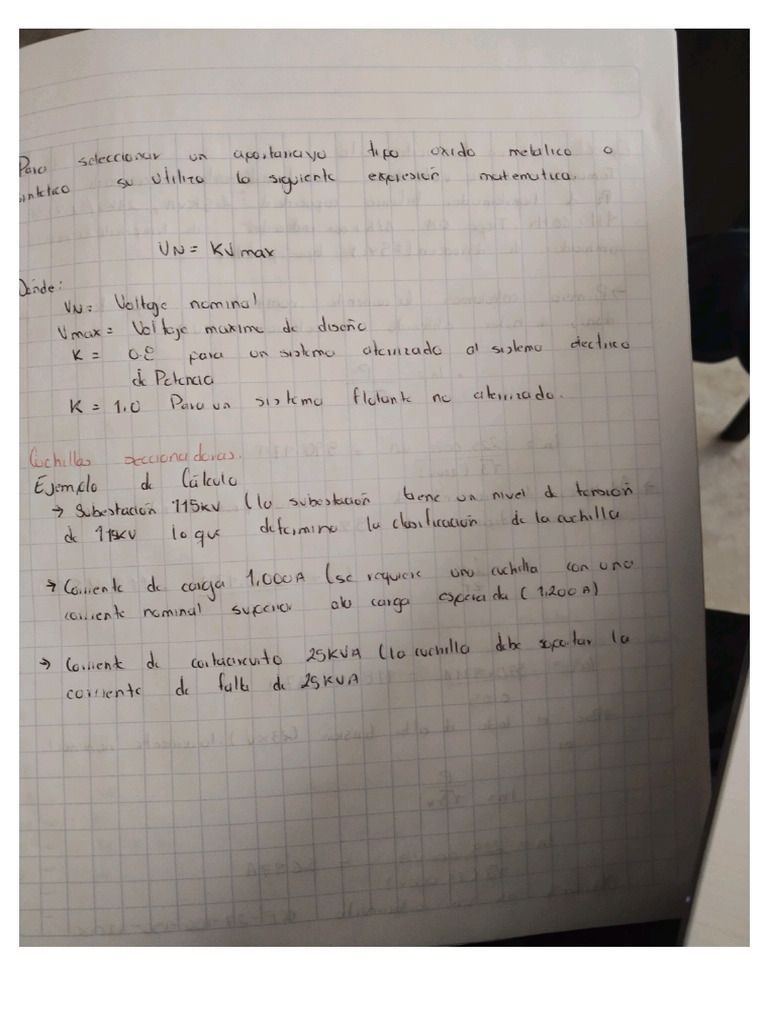 Para seleccionar un apartarrayo tipo oxido metalico o
sintetico su utiliza la siguiente expresión matematica.
VN = KVmax
Donde:
VN = Voltaje nominal
Vmax = Voltaje maximo de diseño
K = 0.8 para un sistema aterrizado al sistema electrico
de Potencia
K = 1.0 Para un sistema flotante no aterrizado.
Cuchillas seccionadoras.
Ejemplo de Cálculo
→ Subestación 115KV (la subestación tiene un nivel de tensión
de 115KV lo que determina la clasificación de la cuchilla
→ Corriente de carga 1,000A (se requiere una cuchilla con una
corriente nominal superior a la carga esperada (1,200A)
→ Corriente de cortacircuito 25KVA (la cuchilla debe soportar la
corriente de falla de 25KVA